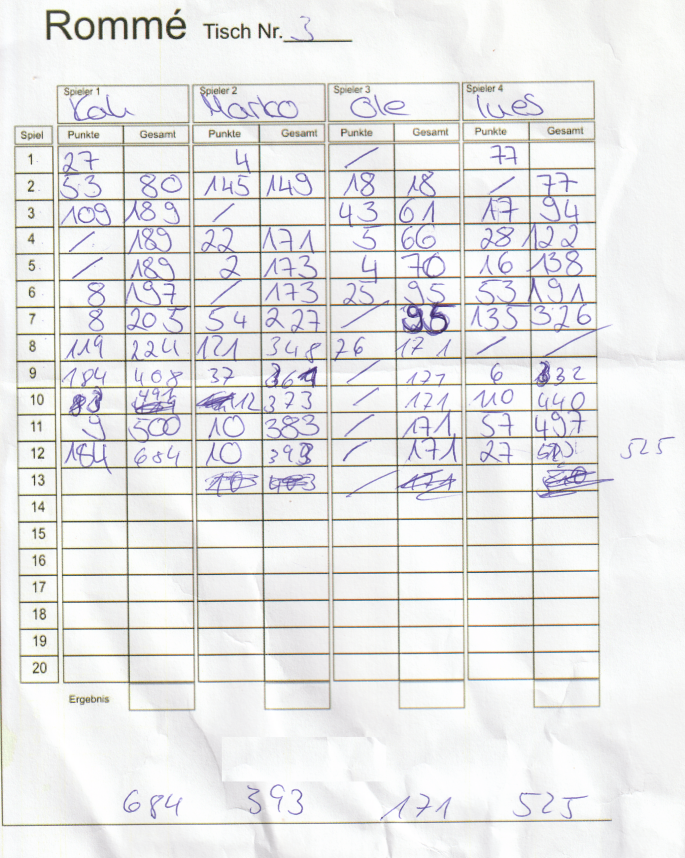 Rommé Tisch Nr. 3
Spieler 1 Spieler 2 Spieler 3 Spieler 4
Kali Marko Ole Ines
Spiel Punkte Gesamt Punkte Gesamt Punkte Gesamt Punkte Gesamt
1 27 4 / 77
2 53 80 145 149 18 18 / 77
3 109 189 / 43 61 17 94
4 / 189 22 171 5 66 28 122
5 / 189 2 173 4 70 16 138
6 8 197 / 173 25 95 53 191
7 8 205 54 227 / 95 135 326
8 119 224 121 348 76 171 / /
9 184 408 37 361 / 171 6 332
10 83 491 12 373 / 171 110 440
11 9 500 10 383 / 171 57 497
12 184 684 10 393 / 171 27 525
13 /
14
15
16
17
18
19
20
Ergebnis
684 393 171 525